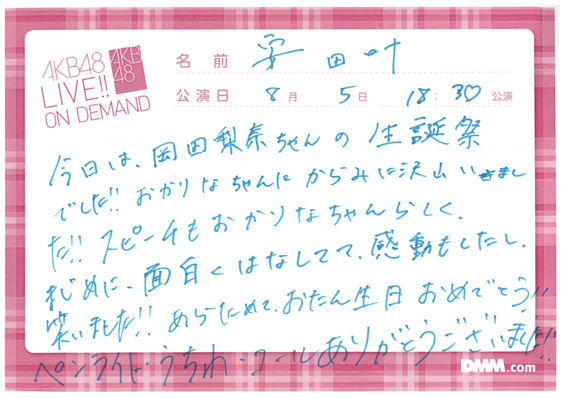 AKB48
LIVE!!
ON DEMAND
AKB
48
名前 安田叶
公演日 8月 5日 18:30♡ 公演
今日は、岡田梨奈ちゃんの生誕祭
でした!! おかりなちゃんにからみに沢山いきまし
た!! スピーチもおかりなちゃんらしく、
まじめに、面白くはなしてて、感動もしたし、
笑いました!! あらためて、おたん生日おめでとう!!
ペンライト・うちわ・コールありがとうございました!!
DMM.com